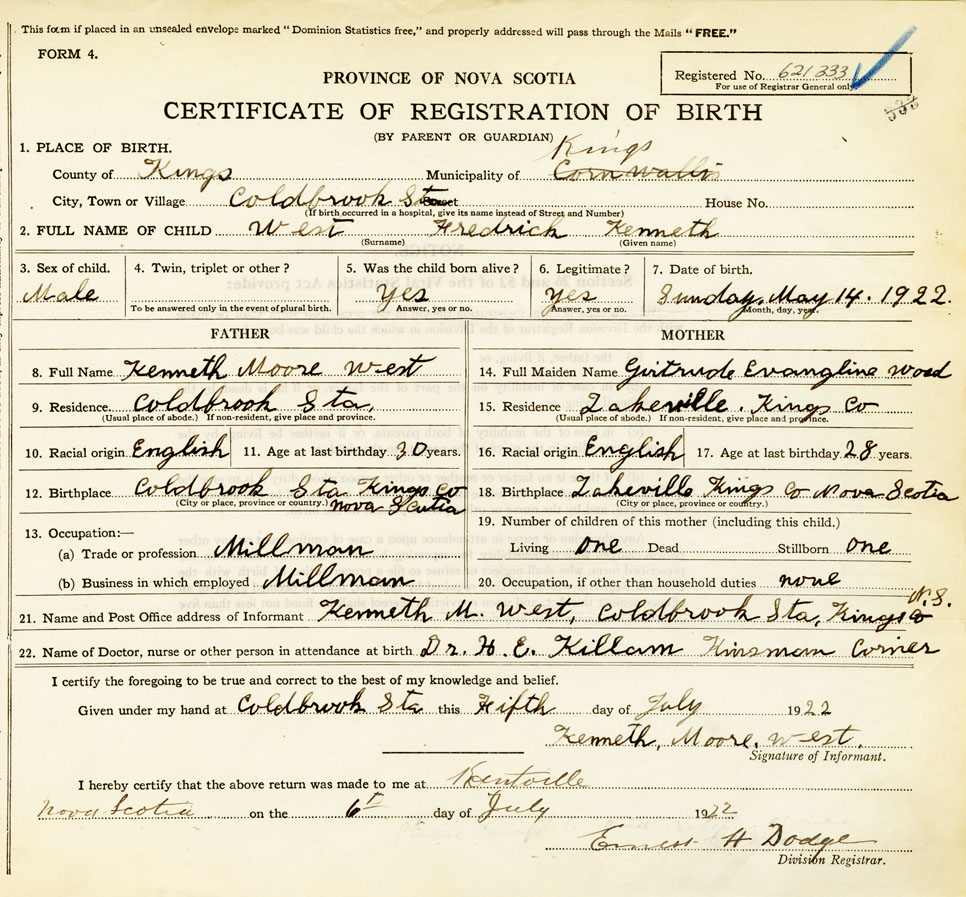 This form if placed in an unsealed envelope marked "Dominion Statistics free," and properly addressed will pass through the Mails "FREE."
FORM 4.
Registered No. 621333
For use of Registrar General only
333
PROVINCE OF NOVA SCOTIA
CERTIFICATE OF REGISTRATION OF BIRTH
(BY PARENT OR GUARDIAN)
1. PLACE OF BIRTH. Kings
County of Kings Municipality of Cornwallis
City, Town or Village Coldbrook Sta Street House No.
(If birth occurred in a hospital, give its name instead of Street and Number)
2. FULL NAME OF CHILD West Fredrich Kenneth
(Surname) (Given name)
3. Sex of child. 4. Twin, triplet or other? 5. Was the child born alive? 6. Legitimate? 7. Date of birth.
Male Yes Yes Sunday, May 14. 1922.
To be answered only in the event of plural birth. Answer, yes or no. Answer, yes or no. Month, day, year.
FATHER MOTHER
8. Full Name Kenneth Moore West 14. Full Maiden Name Girtrude Evangline Wood
9. Residence Coldbrook Sta, 15. Residence Lakeville. Kings Co
(Usual place of abode.) If non-resident, give place and province. (Usual place of abode.) If non-resident, give place and province.
10. Racial origin English 11. Age at last birthday 30 years. 16. Racial origin English 17. Age at last birthday 28 years.
12. Birthplace Coldbrook Sta Kings Co 18. Birthplace Lakeville Kings Co Nova Scotia
(City or place, province or country.) Nova Scutia (City or place, province or country.)
13. Occupation:— 19. Number of children of this mother (including this child.)
(a) Trade or profession Millman Living one Dead Stillborn one
(b) Business in which employed Millman 20. Occupation, if other than household duties none
21. Name and Post Office address of Informant Kenneth M. West, Coldbrook Sta, Kings Co N.S.
22. Name of Doctor, nurse or other person in attendance at birth Dr. H. E. Killam Kinsman Corner
I certify the foregoing to be true and correct to the best of my knowledge and belief.
Given under my hand at Coldbrook Sta this Fifth day of July 1922
Kenneth, Moore, West,
Signature of Informant.
I hereby certify that the above return was made to me at Kentville
Nova Scotia on the 6th day of July 1922
Ernest H Dodge
Division Registrar.